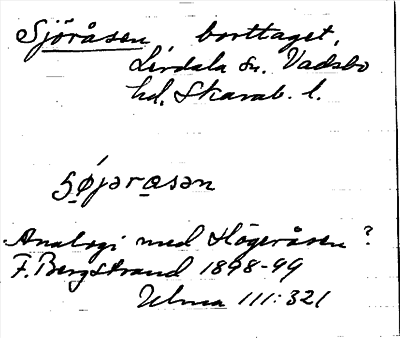 Sjöråsen borttaget,
Lerdala sn. Vadsbo
hd, Skarab. l.
sǿjɘrɑsɘn
Analogi med Högeråsen?
F. Bergstrand 1898-99
Ulma 111:321